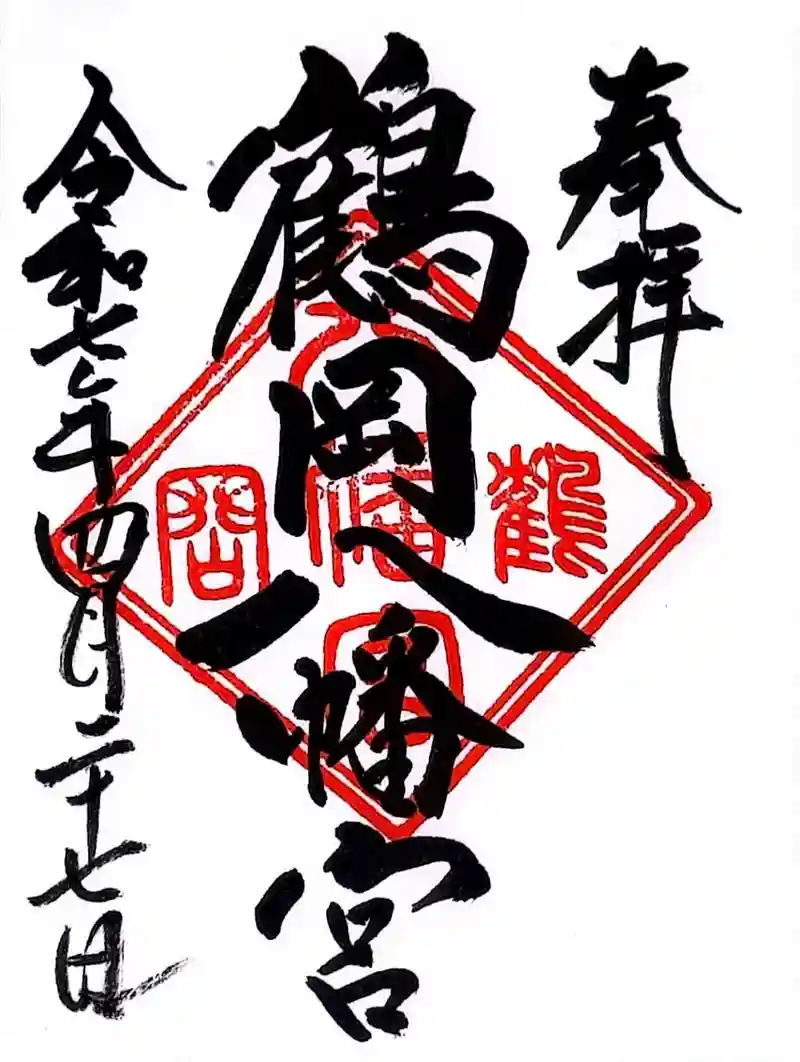 奉拝
鶴岡八幡宮
令和七年四月二十七日
鶴
八幡宮
岡